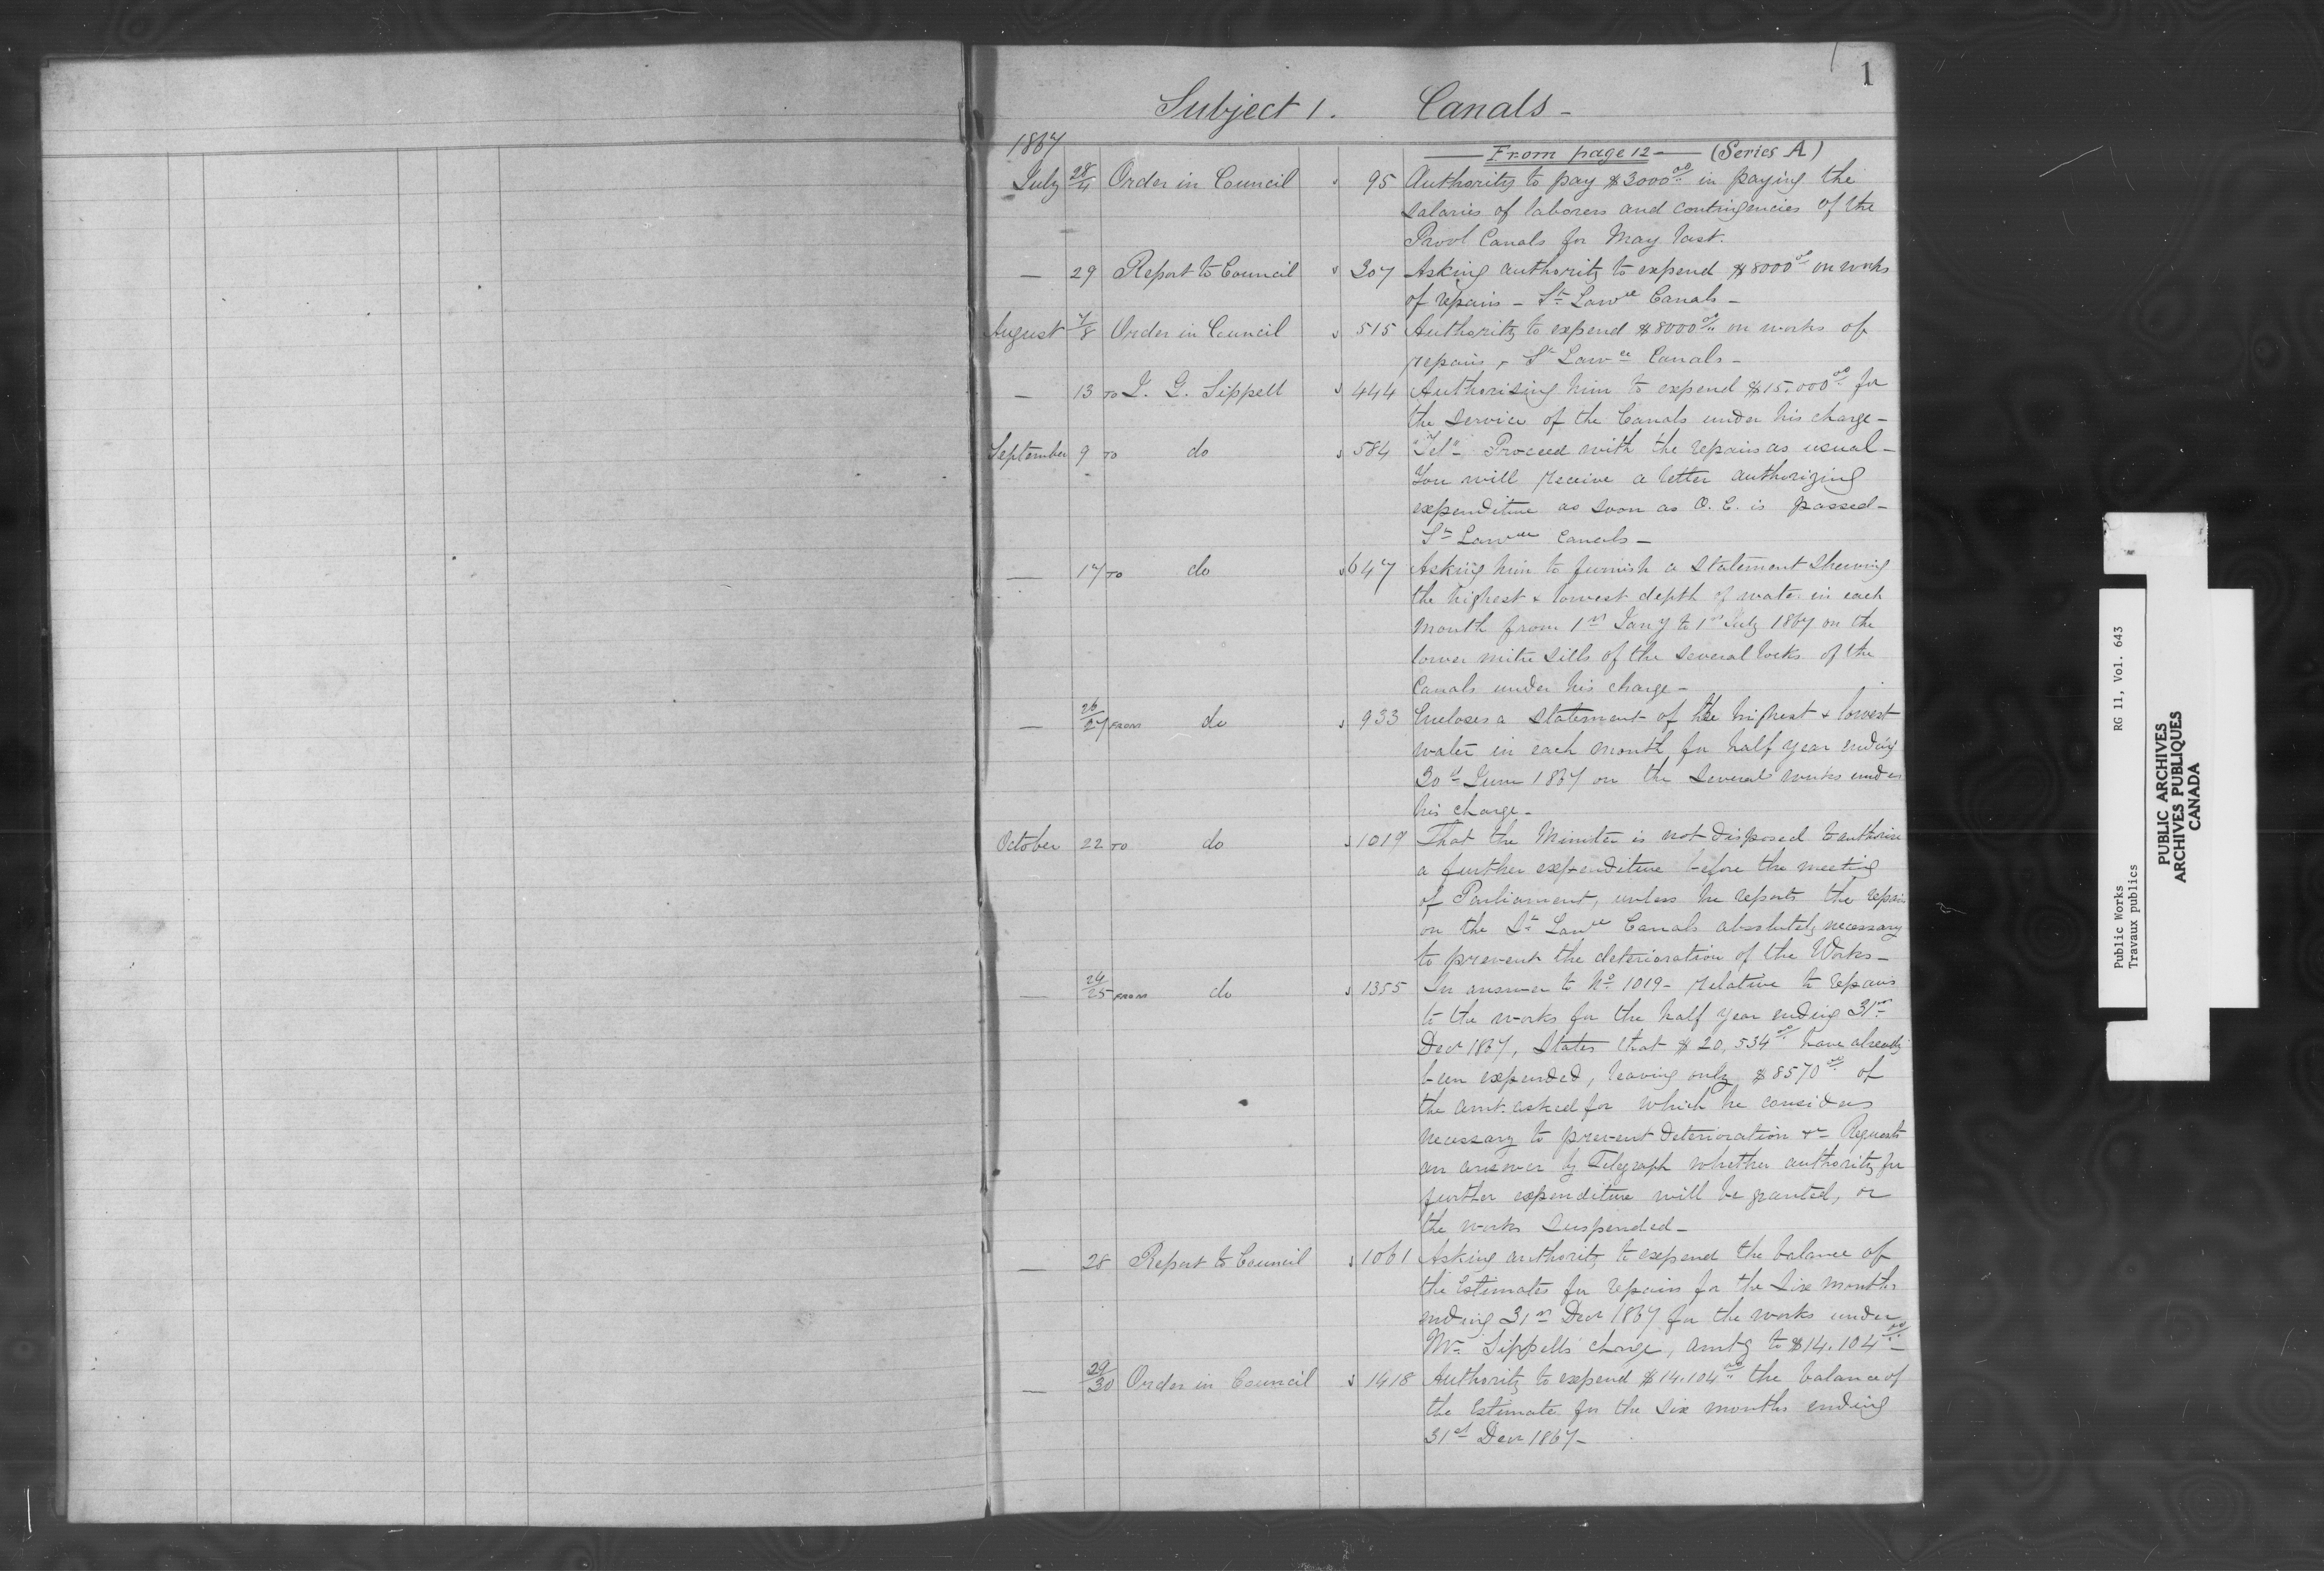 1
Subject 1. Canals -
1867
From page 12 (Series A)
July 28/4 Order in Council 95 Authority to pay $3000 00 in paying the
salaries of laborers and contingencies of the
Provl Canals for May last.
— 29 Report to Council 307 Asking authority to expend $8000 00 on works
of repairs - St Lawce Canals -
August 7/8 Order in Council 515 Authority to expend $8000 00 on works of
repairs, St Lawce Canals -
— 13 TO J. G. Sippell 444 Authorising him to expend $15.000 00 for
the service of the Canals under his charge -
September 9 TO do 584 "Tel" Proceed with the repairs as usual -
You will receive a letter authorizing
expenditure as soon as O. C. is passed -
St Lawce Canals -
— 17 TO do 647 Asking him to furnish a statement shewing
the highest & lowest depth of water in each
month from 1st Jany to 1st July 1867 on the
lower mitre sills of the several locks of the
Canals under his charge -
— 26/27 FROM do 933 Encloses a statement of the highest & lowest
water in each month for half year ending
30th June 1867 on the several works under
his charge -
October 22 TO do 1019 That the Minister is not disposed to authorise
a further expenditure before the meeting
of Parliament, unless he reports the repairs
on the St Lawce Canals absolutely necessary
to prevent the deterioration of the Works -
— 24/25 FROM do 1355 In answer to No 1019 - relative to repairs
to the works for the half year ending 31st
Decr 1867, States that $20,534 00 have already
been expended, leaving only $8570 00 of
the amt. asked for which he considers
necessary to prevent deterioration &c - Requests
an answer by Telegraph whether authority for
further expenditure will be granted, or
the works suspended -
— 28 Report to Council 1061 Asking authority to expend the balance of
the Estimates for repairs for the six months
ending 31st Decr 1867 for the works under
Mr Sippells charge, amtg to $14.104 00 -
— 29/30 Order in Council 1418 Authority to expend $14.104 00 the balance of
the Estimate for the six months ending
31st Decr 1867 -
Public Works RG 11, Vol. 643
Travaux publics
PUBLIC ARCHIVES
ARCHIVES PUBLIQUES
CANADA